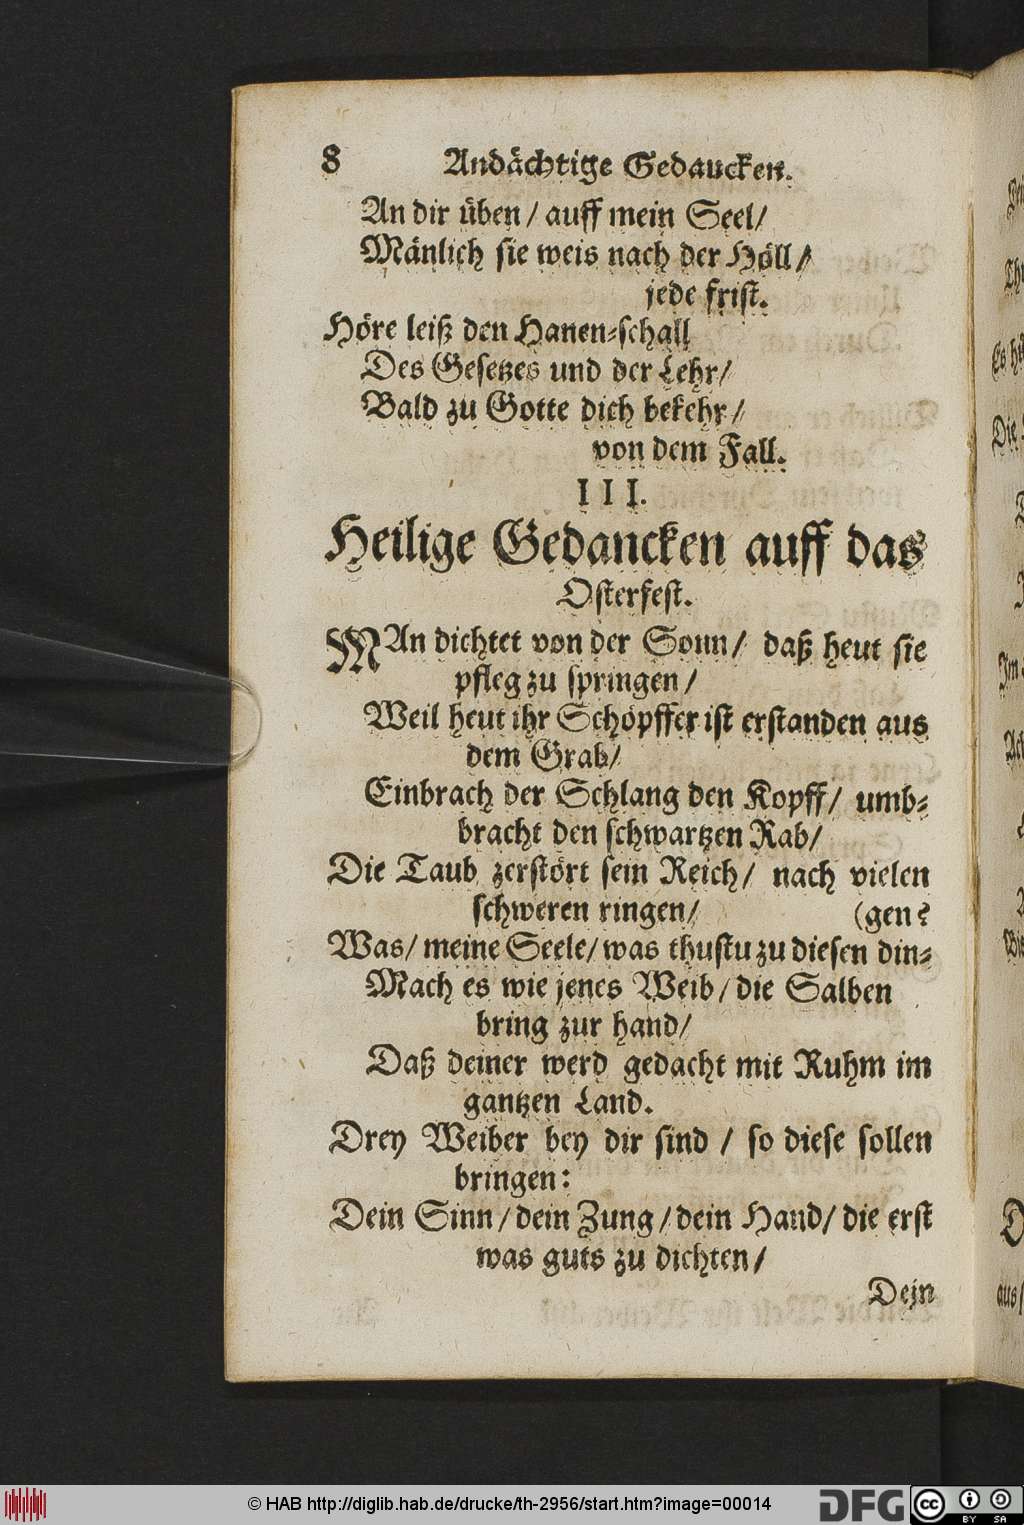 8 Andächtige Gedaucken.
An dir üben / auff mein Seel/
Mänlich sie weis nach der Höll/
jede frist.
Höre leiß den Hanen-schall
Des Gesetzes und der Lehr/
Bald zu Gotte dich bekehr/
von dem Fall.
III.
Heilige Gedancken auff das
Osterfest.
MAn dichtet von der Sonn/ daß heut sie
pfleg zu springen/
Weil heut ihr Schöpffer ist erstanden aus
dem Grab/
Einbrach der Schlang den Kopff/ umb-
bracht den schwartzen Rab/
Die Taub zerstört sein Reich/ nach vielen
schweren ringen/ (gen?
Was/ meine Seele/ was thustu zu diesen din-
Mach es wie jenes Weib/ die Salben
bring zur hand/
Daß deiner werd gedacht mit Ruhm im
gantzen Land.
Drey Weiber bey dir sind / so diese sollen
bringen:
Dein Sinn/ dein Zung/ dein Hand/ die erst
was guts zu dichten/
Dein
© HAB http://diglib.hab.de/drucke/th-2956/start.htm?image=00014
DFG
cc
BY SA